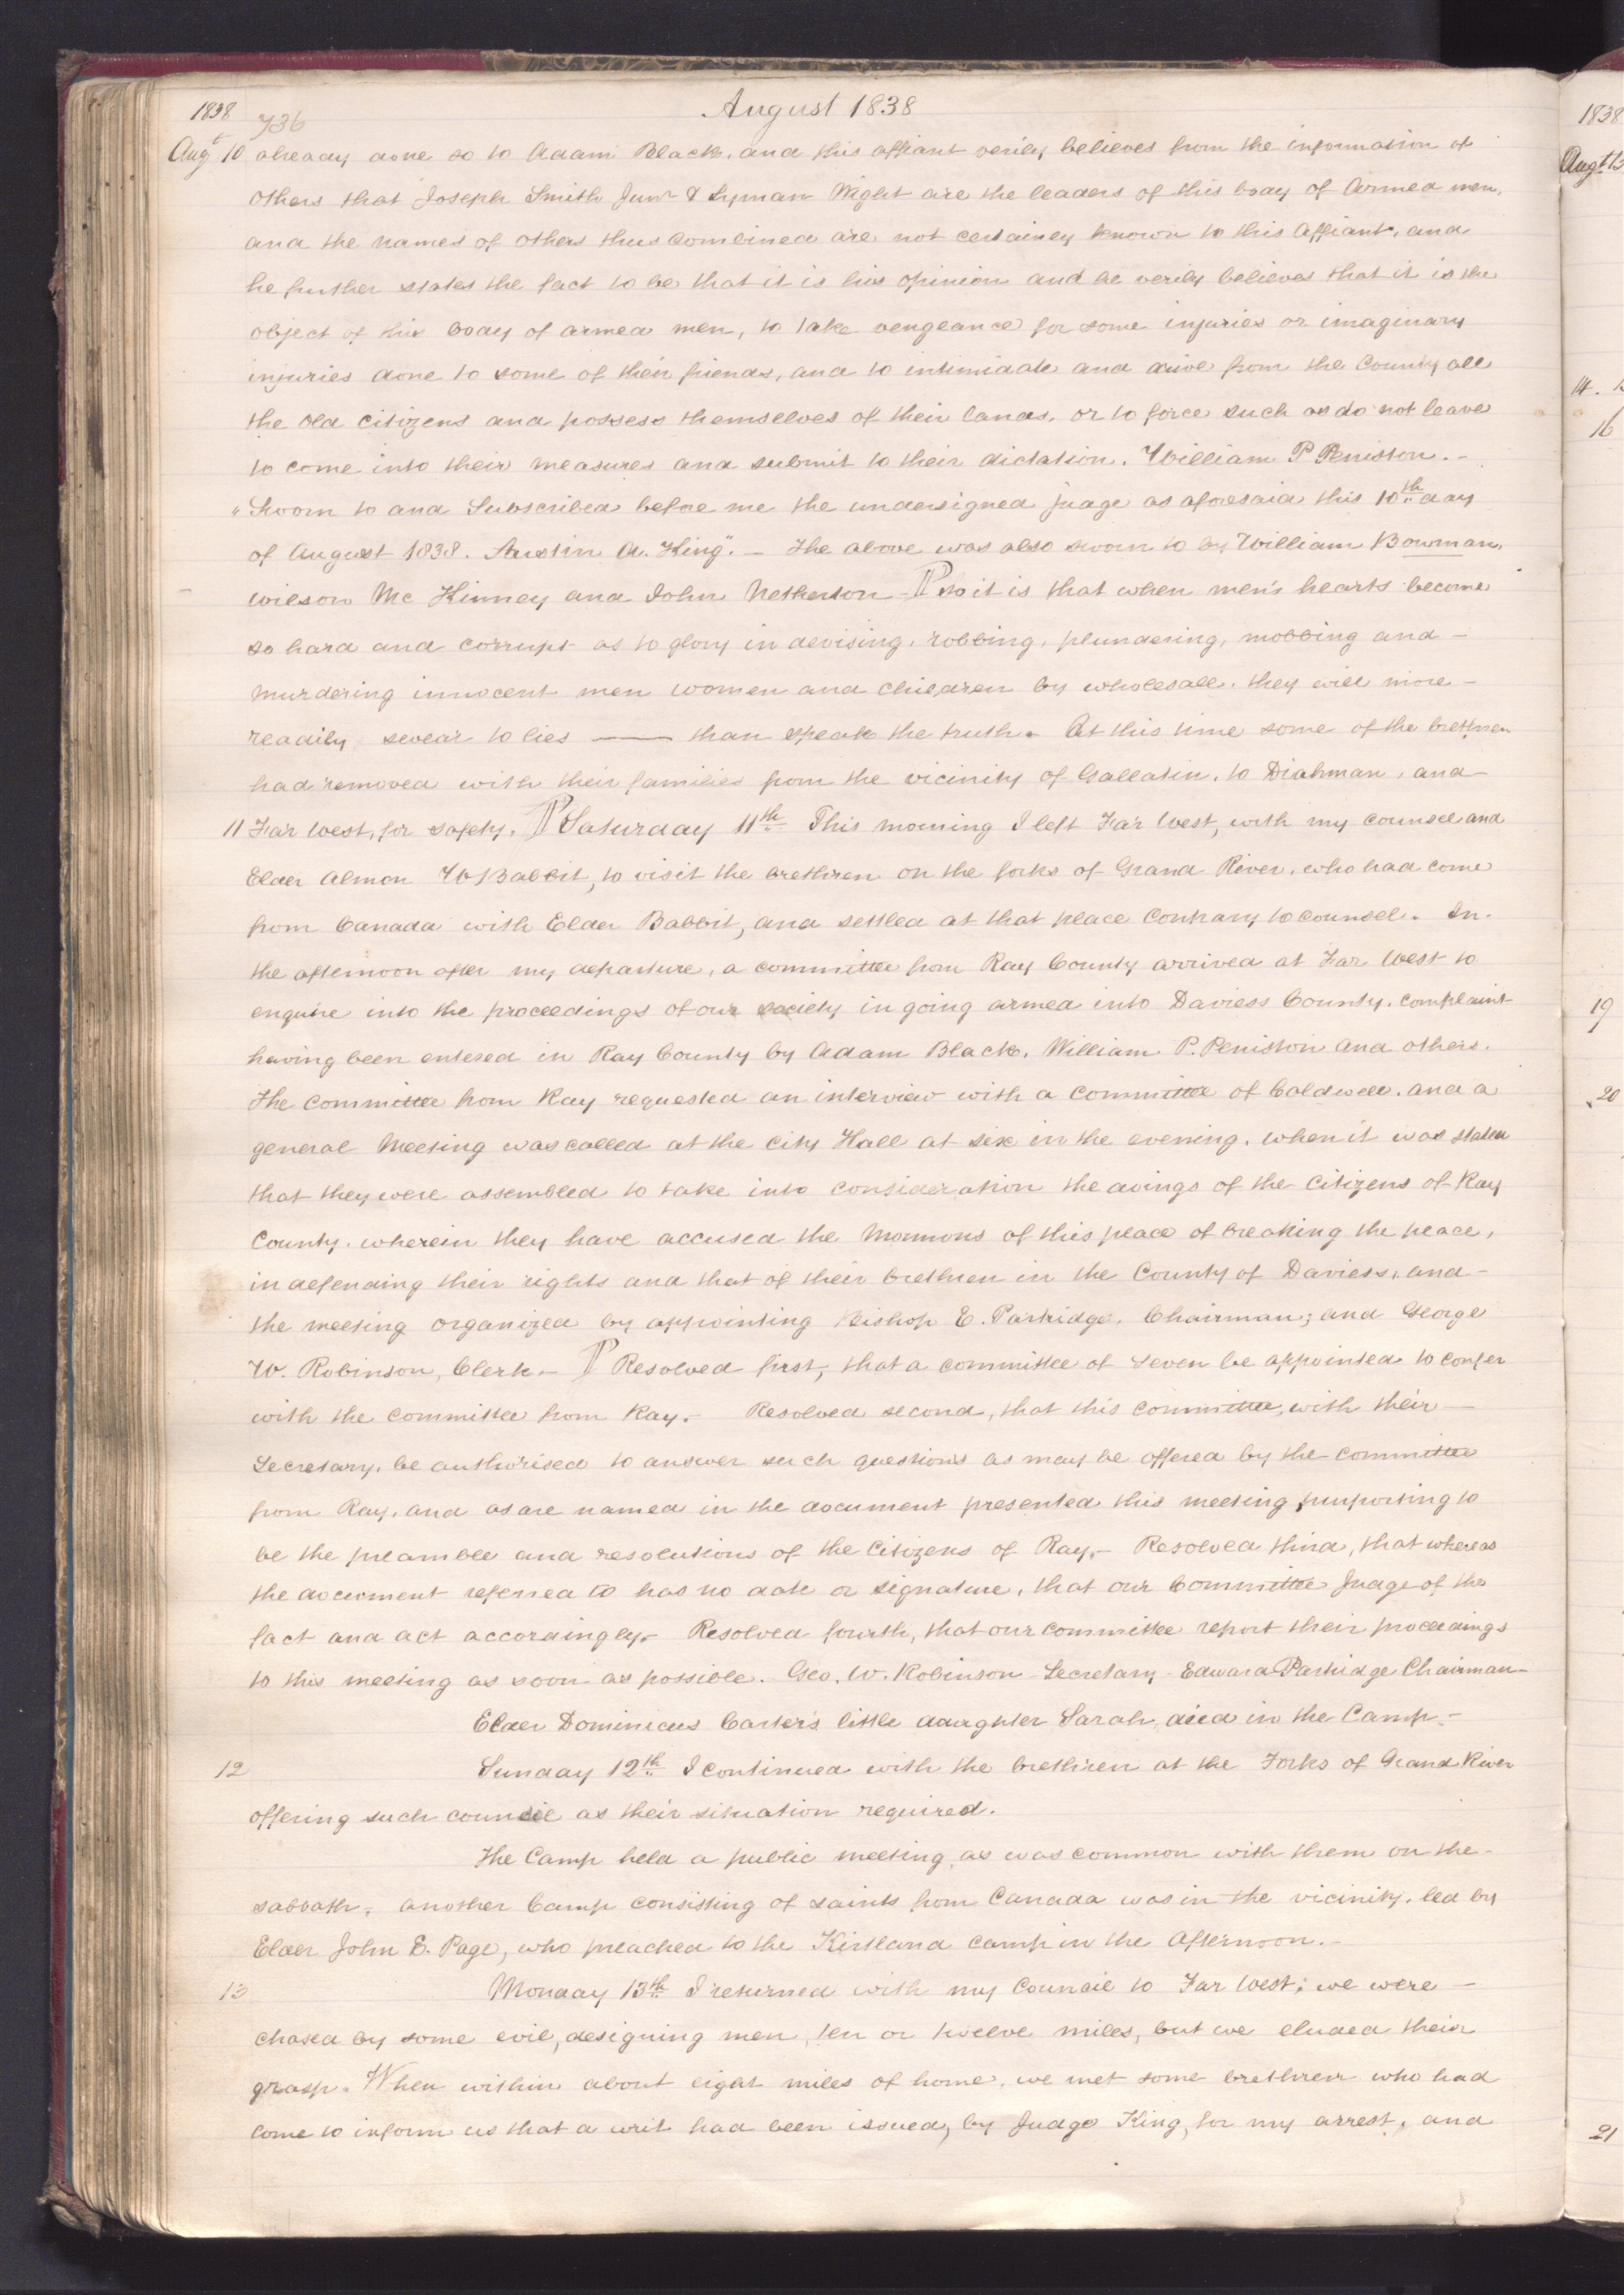 1838 736 August 1838
Augt 10 already done so to Adam Black, and this affiant verily believes from the information of
others that Joseph Smith Junr & Lyman Wight are the leaders of this body of armed men,
and the names of others thus combined are not certainly known to this affiant, and
he further states the fact to be that it is his opinion and he verily believes that it is the
object of this body of armed men, to take vengeance for some injuries or imaginary
injuries done to some of their friends, and to intimidate and drive from the County all
the old citizens and possess themselves of their lands, or to force such as do not leave
to come into their measures and submit to their dictation. William P Peniston.—
"Sworn to and Subscribed before me the undersigned judge as aforesaid this 10th day
of August 1838. Austin A. King".— The above was also sworn to by William Bowman,
Wilson Mc Kinney and John Netherton — ¶ so it is that when men's hearts become
so hard and corrupt as to glory in devising, robbing, plundering, mobbing and —
murdering innocent men women and children by wholesale, they will more —
readily swear to lies —— than speak the truth. At this time some of the brethren
had removed with their families from the vicinity of Gallatin, to Diahman, and —
11 Far West, for safety. ¶ Saturday 11th This morning I left Far West, with my counsel and
Elder Almon W Babbit, to visit the brethren on the forks of Grand River, who had come
from Canada with Elder Babbit, and settled at that place contrary to counsel. In
the afternoon after my departure, a committee from Ray County arrived at Far West to
enquire into the proceedings of our society in going armed into Daviess County, complaint
having been entered in Ray County by Adam Black, William P. Peniston and others.
The committee from Ray requested an interview with a committee of Caldwell, and a
general Meeting was called at the city Hall at six in the evening, when it was stated
that they were assembled to take into consideration the doings of the citizens of Ray
County, wherein they have accused the Mormons of this place of breaking the peace,
in defending their rights and that of their brethren in the County of Daviess, and —
the meeting organized by appointing Bishop E. Partridge, Chairman; and George
W. Robinson, Clerk.— ¶ Resolved first, that a committee of seven be appointed to confer
with the committee from Ray.— Resolved second, that this committee, with their —
Secretary, be authorised to answer such questions as may be offered by the committee
from Ray, and as are named in the document presented this meeting, purporting to
be the preamble and resolutions of the Citizens of Ray.— Resolved third, that whereas
the document referred to has no date or signature, that our Committee judge of the
fact and act accordingly.— Resolved fourth, that our committee report their proceedings
to this meeting as soon as possible. Geo. W. Robinson Secretary — Edward Partridge Chairman —
Elder Dominicus Carter's little daughter Sarah, died in the Camp.—
12 Sunday 12th I continued with the brethren at the Forks of Grand River
offering such council as their situation required.
The Camp held a public meeting, as was common with them on the
sabbath, another Camp consisting of saints from Canada was in the vicinity, led by
Elder John E. Page, who preached to the Kirtland camp in the afternoon.—
13 Monday 13th I returned with my Council to Far West; we were —
chased by some evil, designing men, ten or twelve miles, but we eluded their
grasp. When within about eight miles of home, we met some brethren who had
come to inform us that a writ had been issued, by Judge King, for my arrest, and
1838
Augt 13
14.
16
19
20
21